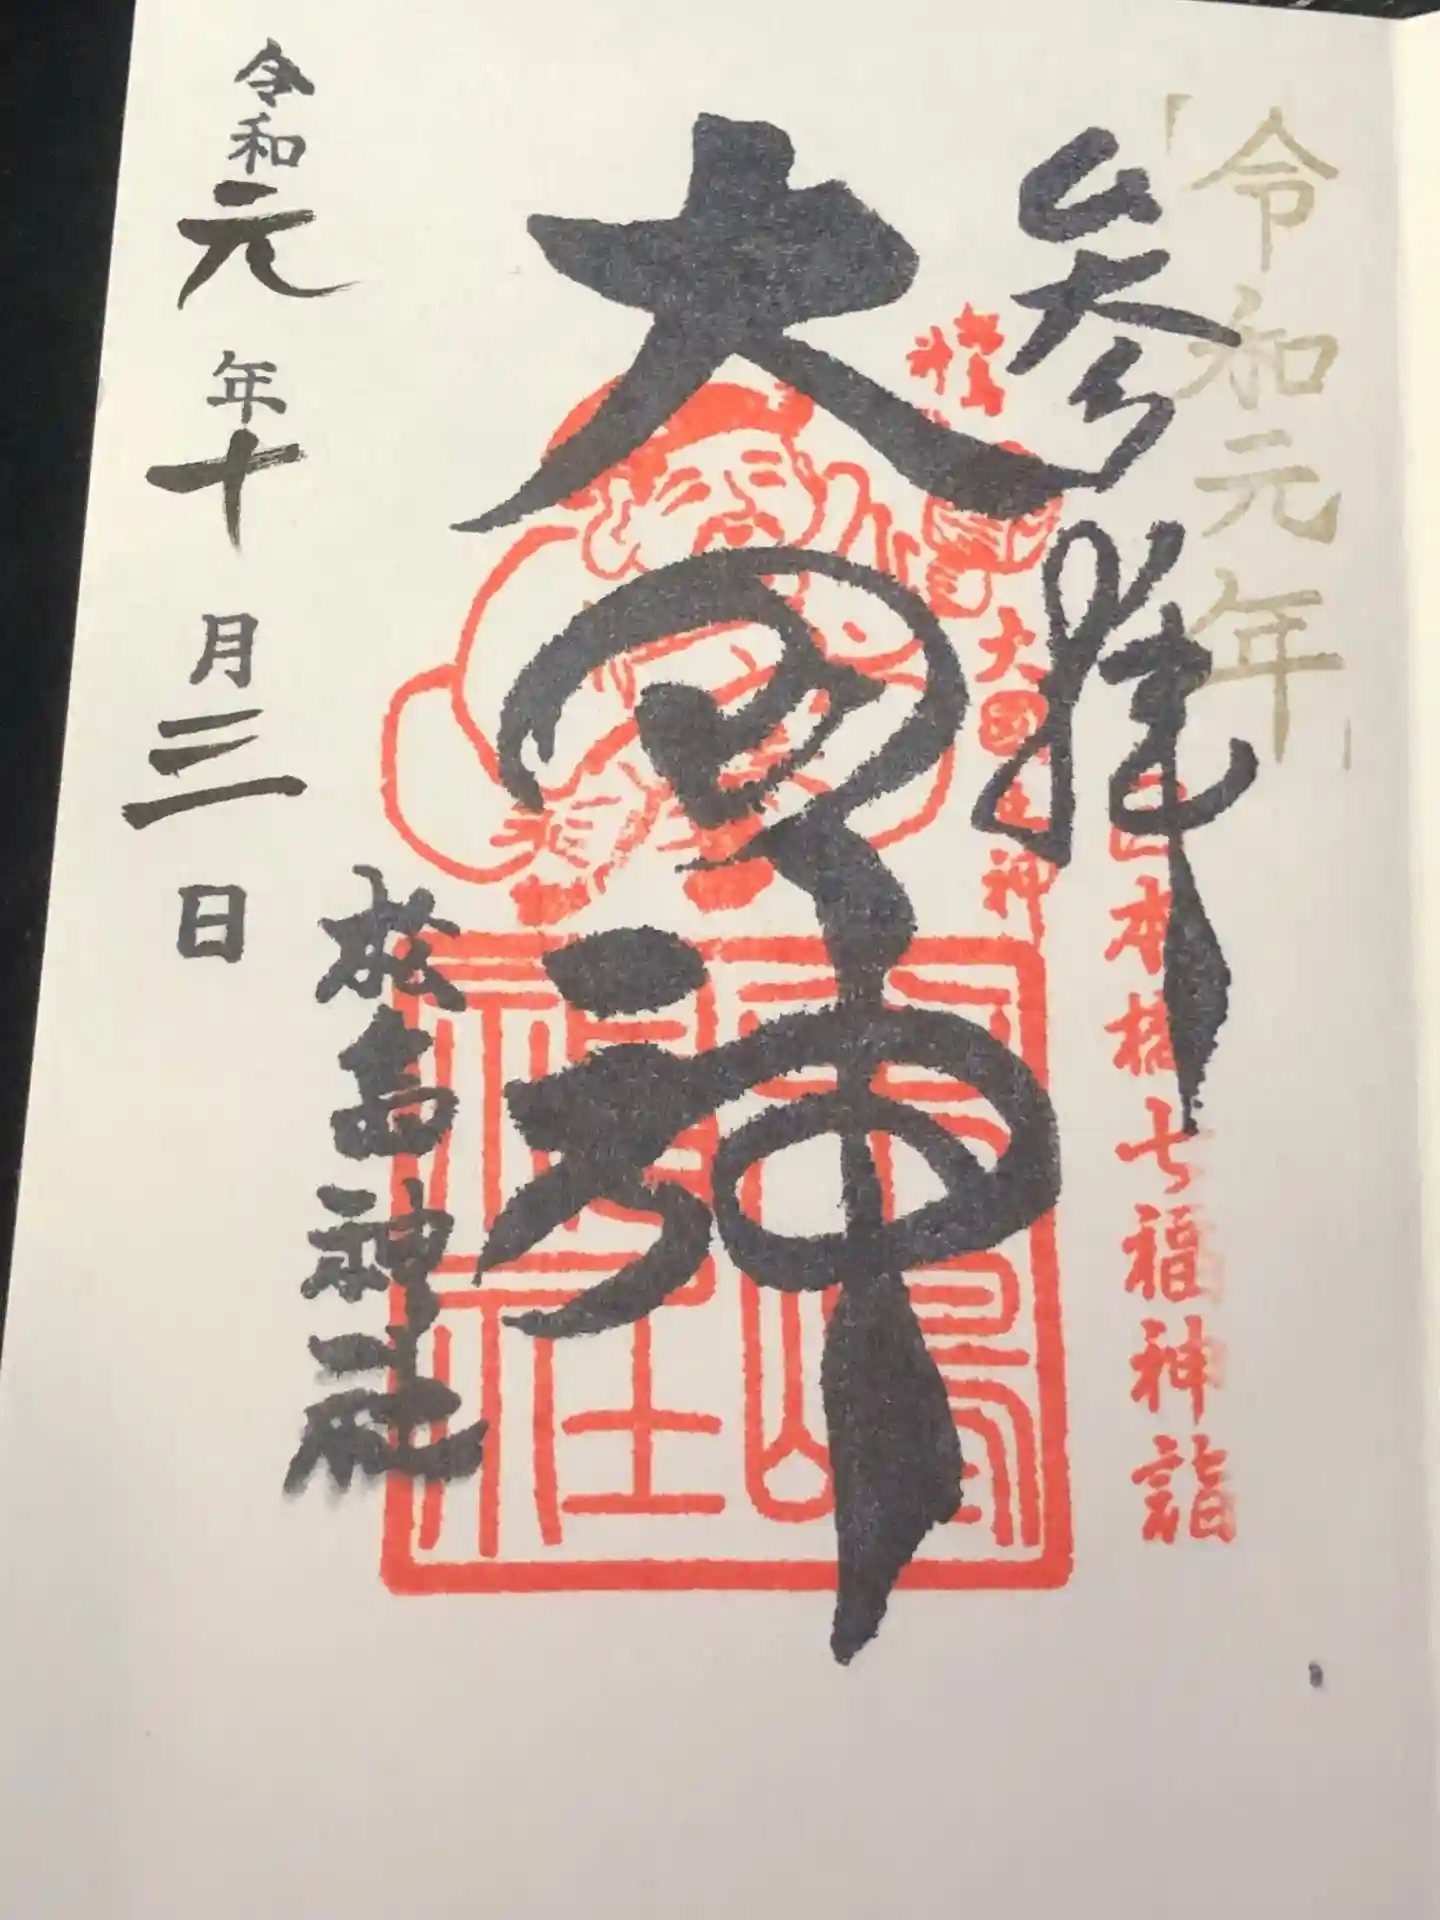 「令和元年」
参拝
日本橋七福神詣
松島神社
大國主神
大国神
松島神社
令和元年十月三日